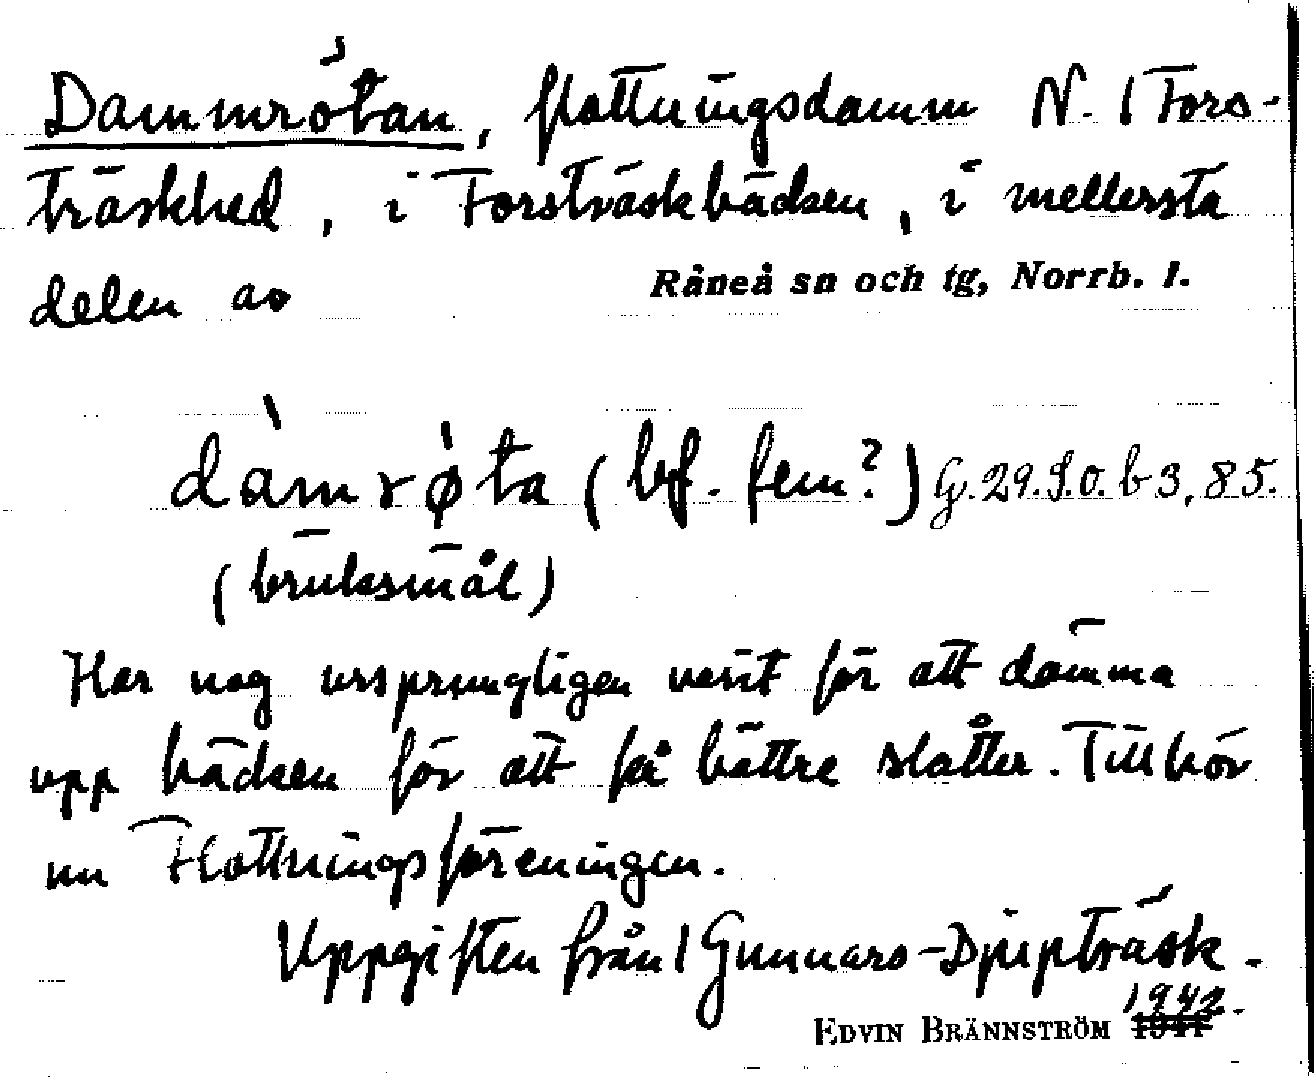 Dammrötan, flottningsdamm N. | Fors-
träskhed, i Forsträskbäcken, i mellersta
delen av Råneå sn och tg, Norrb. l.
dàmrø̀ta (bf. fem?) G. 29. 9.0. b 3, 85.
(bruksmål)
Har nog ursprungligen varit för att dämma
upp bäcken för att få bättre slåtter. Tillhör
nu Flottningsföreningen.
Uppgiften från | Gunnars-Djupträsk.
1942.
EDVIN BRÄNNSTRÖM 1941